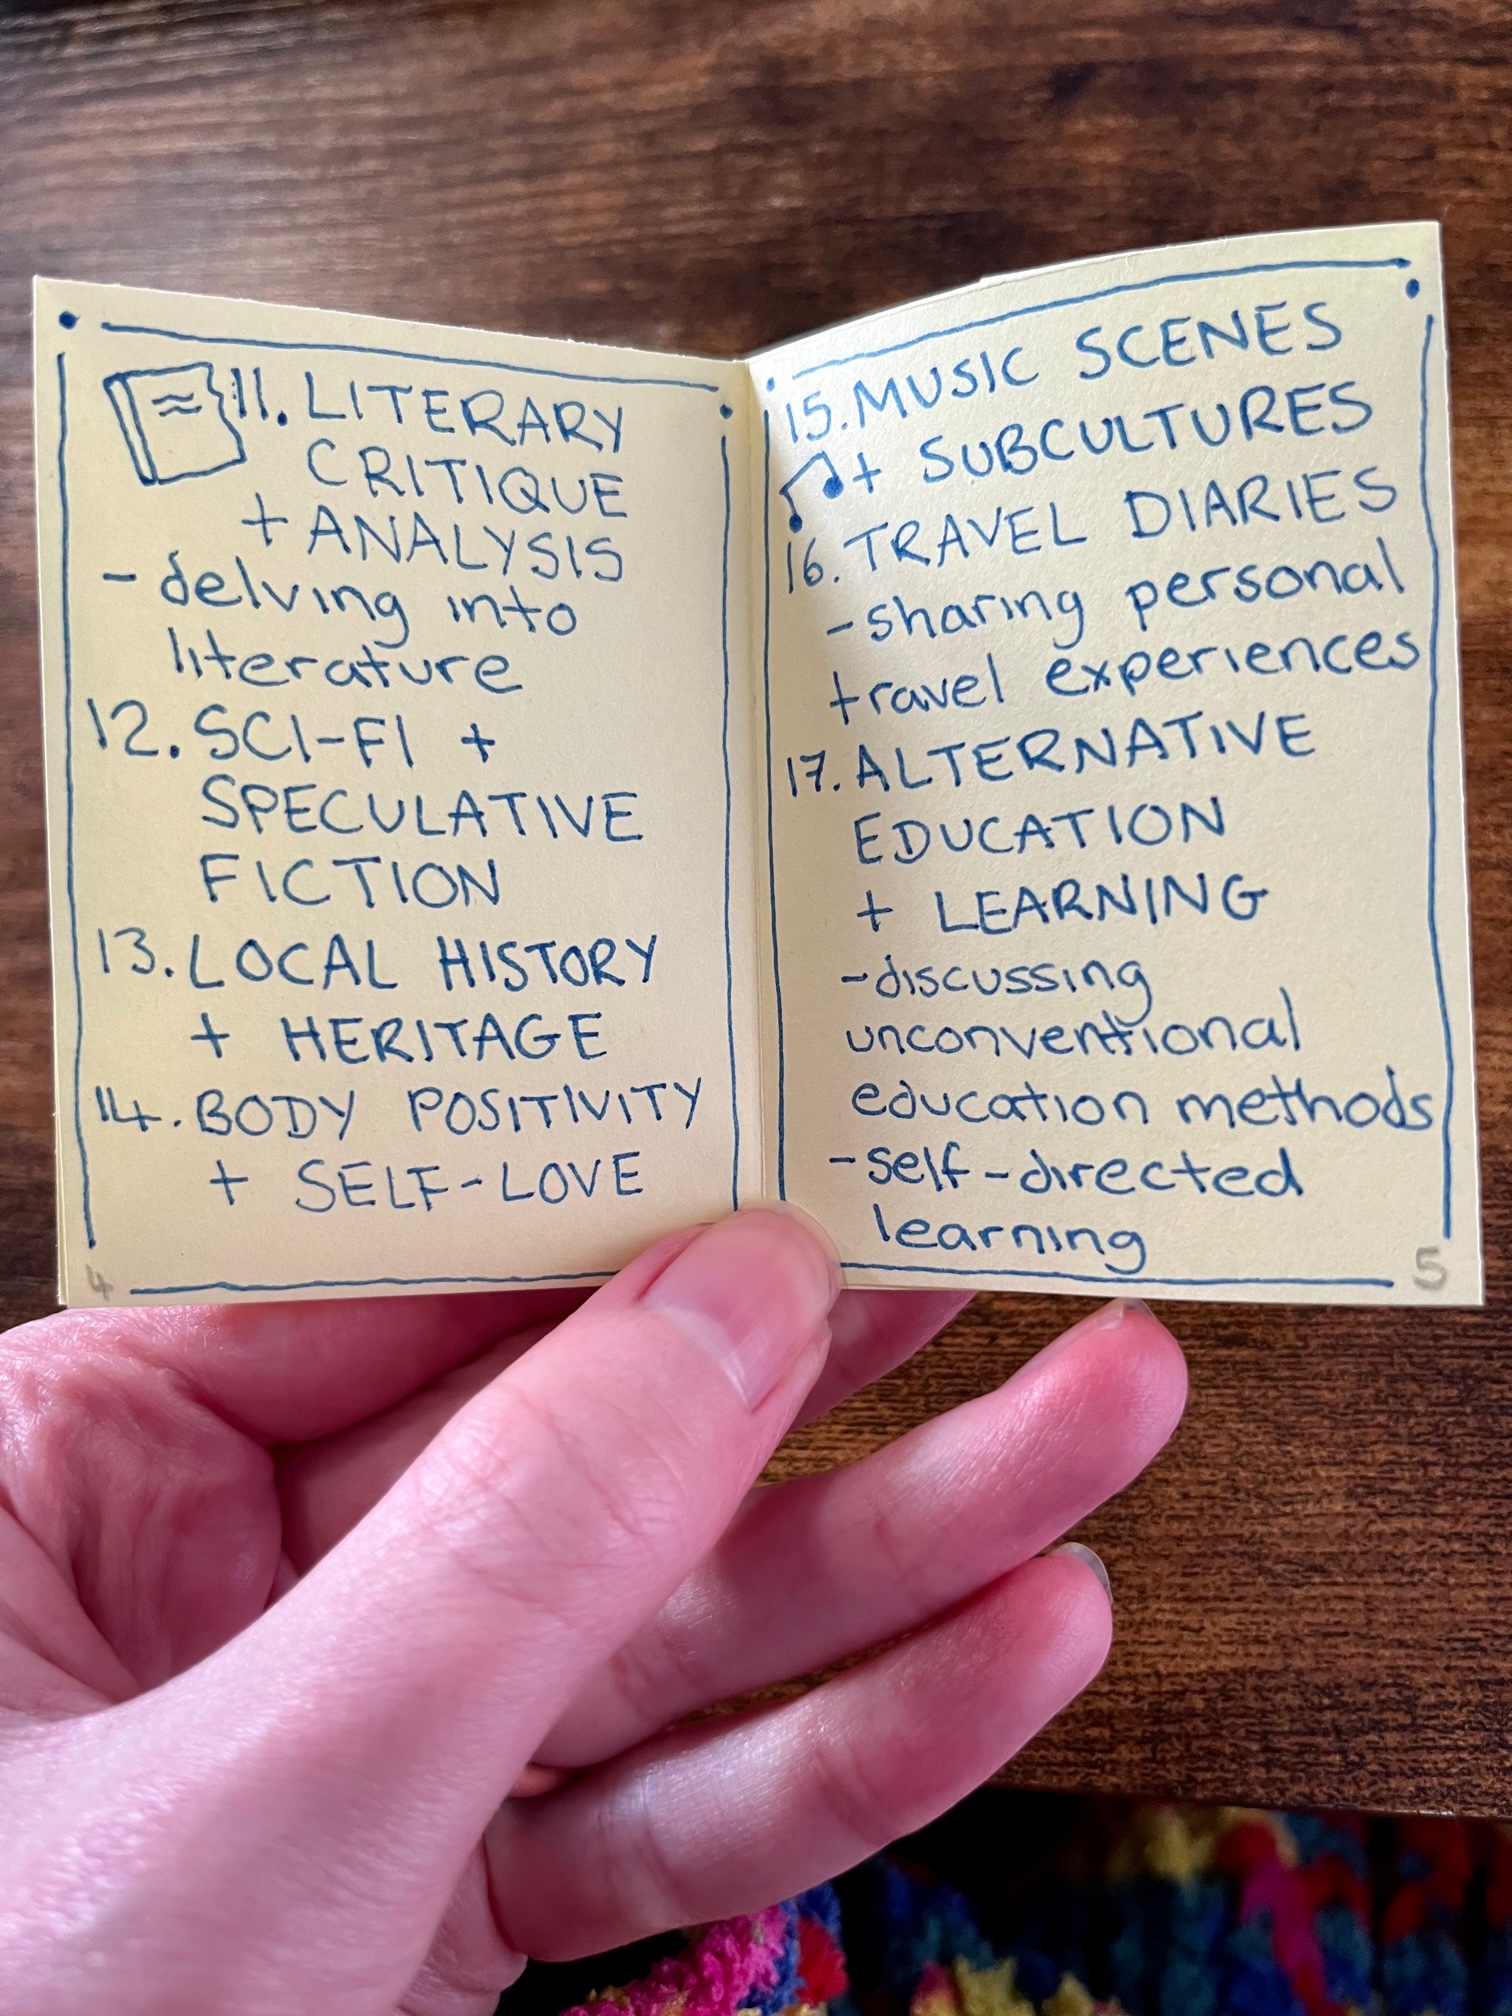 11. LITERARY
CRITIQUE
+ ANALYSIS
- delving into
literature
12. SCI-FI +
SPECULATIVE
FICTION
13. LOCAL HISTORY
+ HERITAGE
14. BODY POSITIVITY
+ SELF-LOVE
4
15. MUSIC SCENES
+ SUBCULTURES
16. TRAVEL DIARIES
- sharing personal
travel experiences
17. ALTERNATIVE
EDUCATION
+ LEARNING
- discussing
unconventional
education methods
- self-directed
learning
5